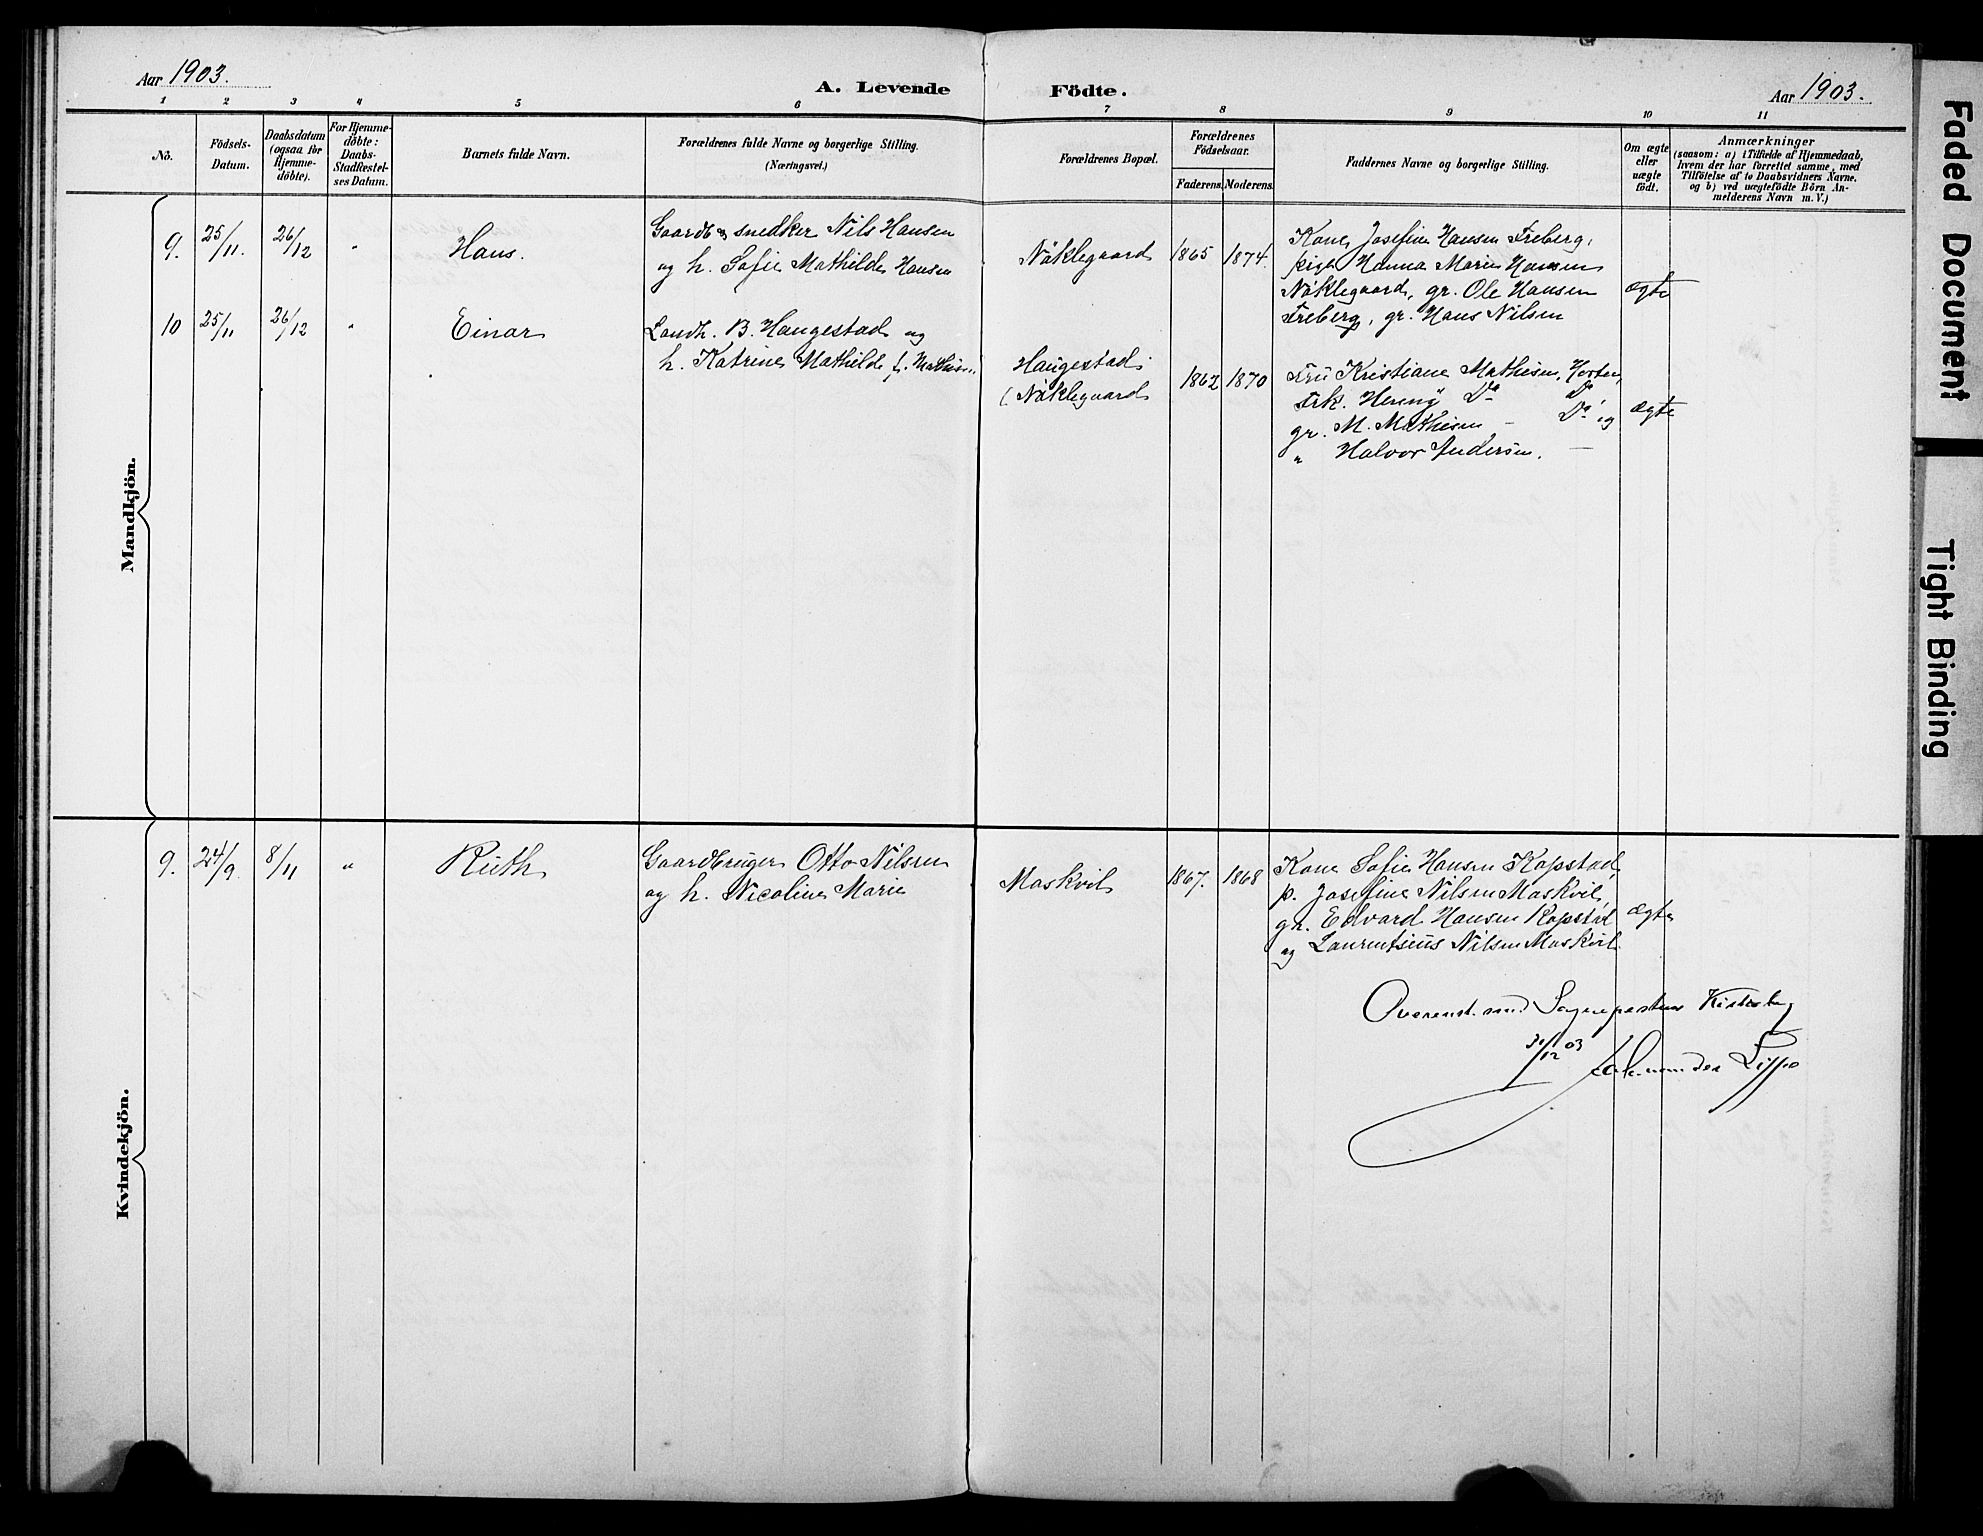 Aar 1903.
A. Levende Födte.
Aar 1903.
1 2 3 4 5 6 7 8 9 10 11
No.
Födsels-
Datum.
Daabsdatum
(ogsaa for
Hjemme-
döbte).
For Hjemme-
döbte:
Daabs-
Stadfæstel-
ses Datum.
Barnets fulde Navn.
Forældrenes fulde Navne og borgerlige Stilling.
(Næringsvei.)
Forældrenes Bopæl.
Forældrenes
Födselsaar.
Faderens. Moderens.
Faddernes Navne og borgerlige Stilling.
Om ægte
eller
uægte
födt.
Anmærkninger
(saasom: a) i Tilfælde af Hjemmedaab,
hvem der har forrettet samme, med
Tilföielse af to Daabsvidners Navne.
og b) ved uægtefödte Börn An-
melderens Navn m. V.)
Mandkjön.
9. 25/11. 26/12 " Hans.
Gaardb & snedker Nils Hansen
og h. Sofie Mathilde Hansen
Nöklegaard 1865 1874.
Kone Josefine Hansen Freberg,
pige Hanna Marie Hansen
Nöklegaard, gr. Ole Hansen
Freberg, gr. Hans Nilsen
ægte
10 25/11 26/12 " Einar
Landh. B. Haugestad og
h. Katrine Mathilde f. Mathisen.
Haugestad
(Nöklegaard 1862 1870
Fru Kristiane Mathisen, Horten,
Frk. Henny Do Do
gr. M. Mathisen - Do og
" Halvor Andersen. —
ægte
Kvindekjön.
9. 24/9 8/11 " Ruth
Gaardbruger Otto Nilsen
og h. Nicoline Marie
Maskvil 1867. 1868
Kone Sofie Hansen Kopstad,
p. Josefine Nilsen Maskvil,
gr. Edvard Hansen Kopstad
og Laurentsius Nilsen Maskvil.
ægte
Overenst. med Sognepræstens Kirkebog
31/12 03
Lippe
Faded Document
Tight Binding